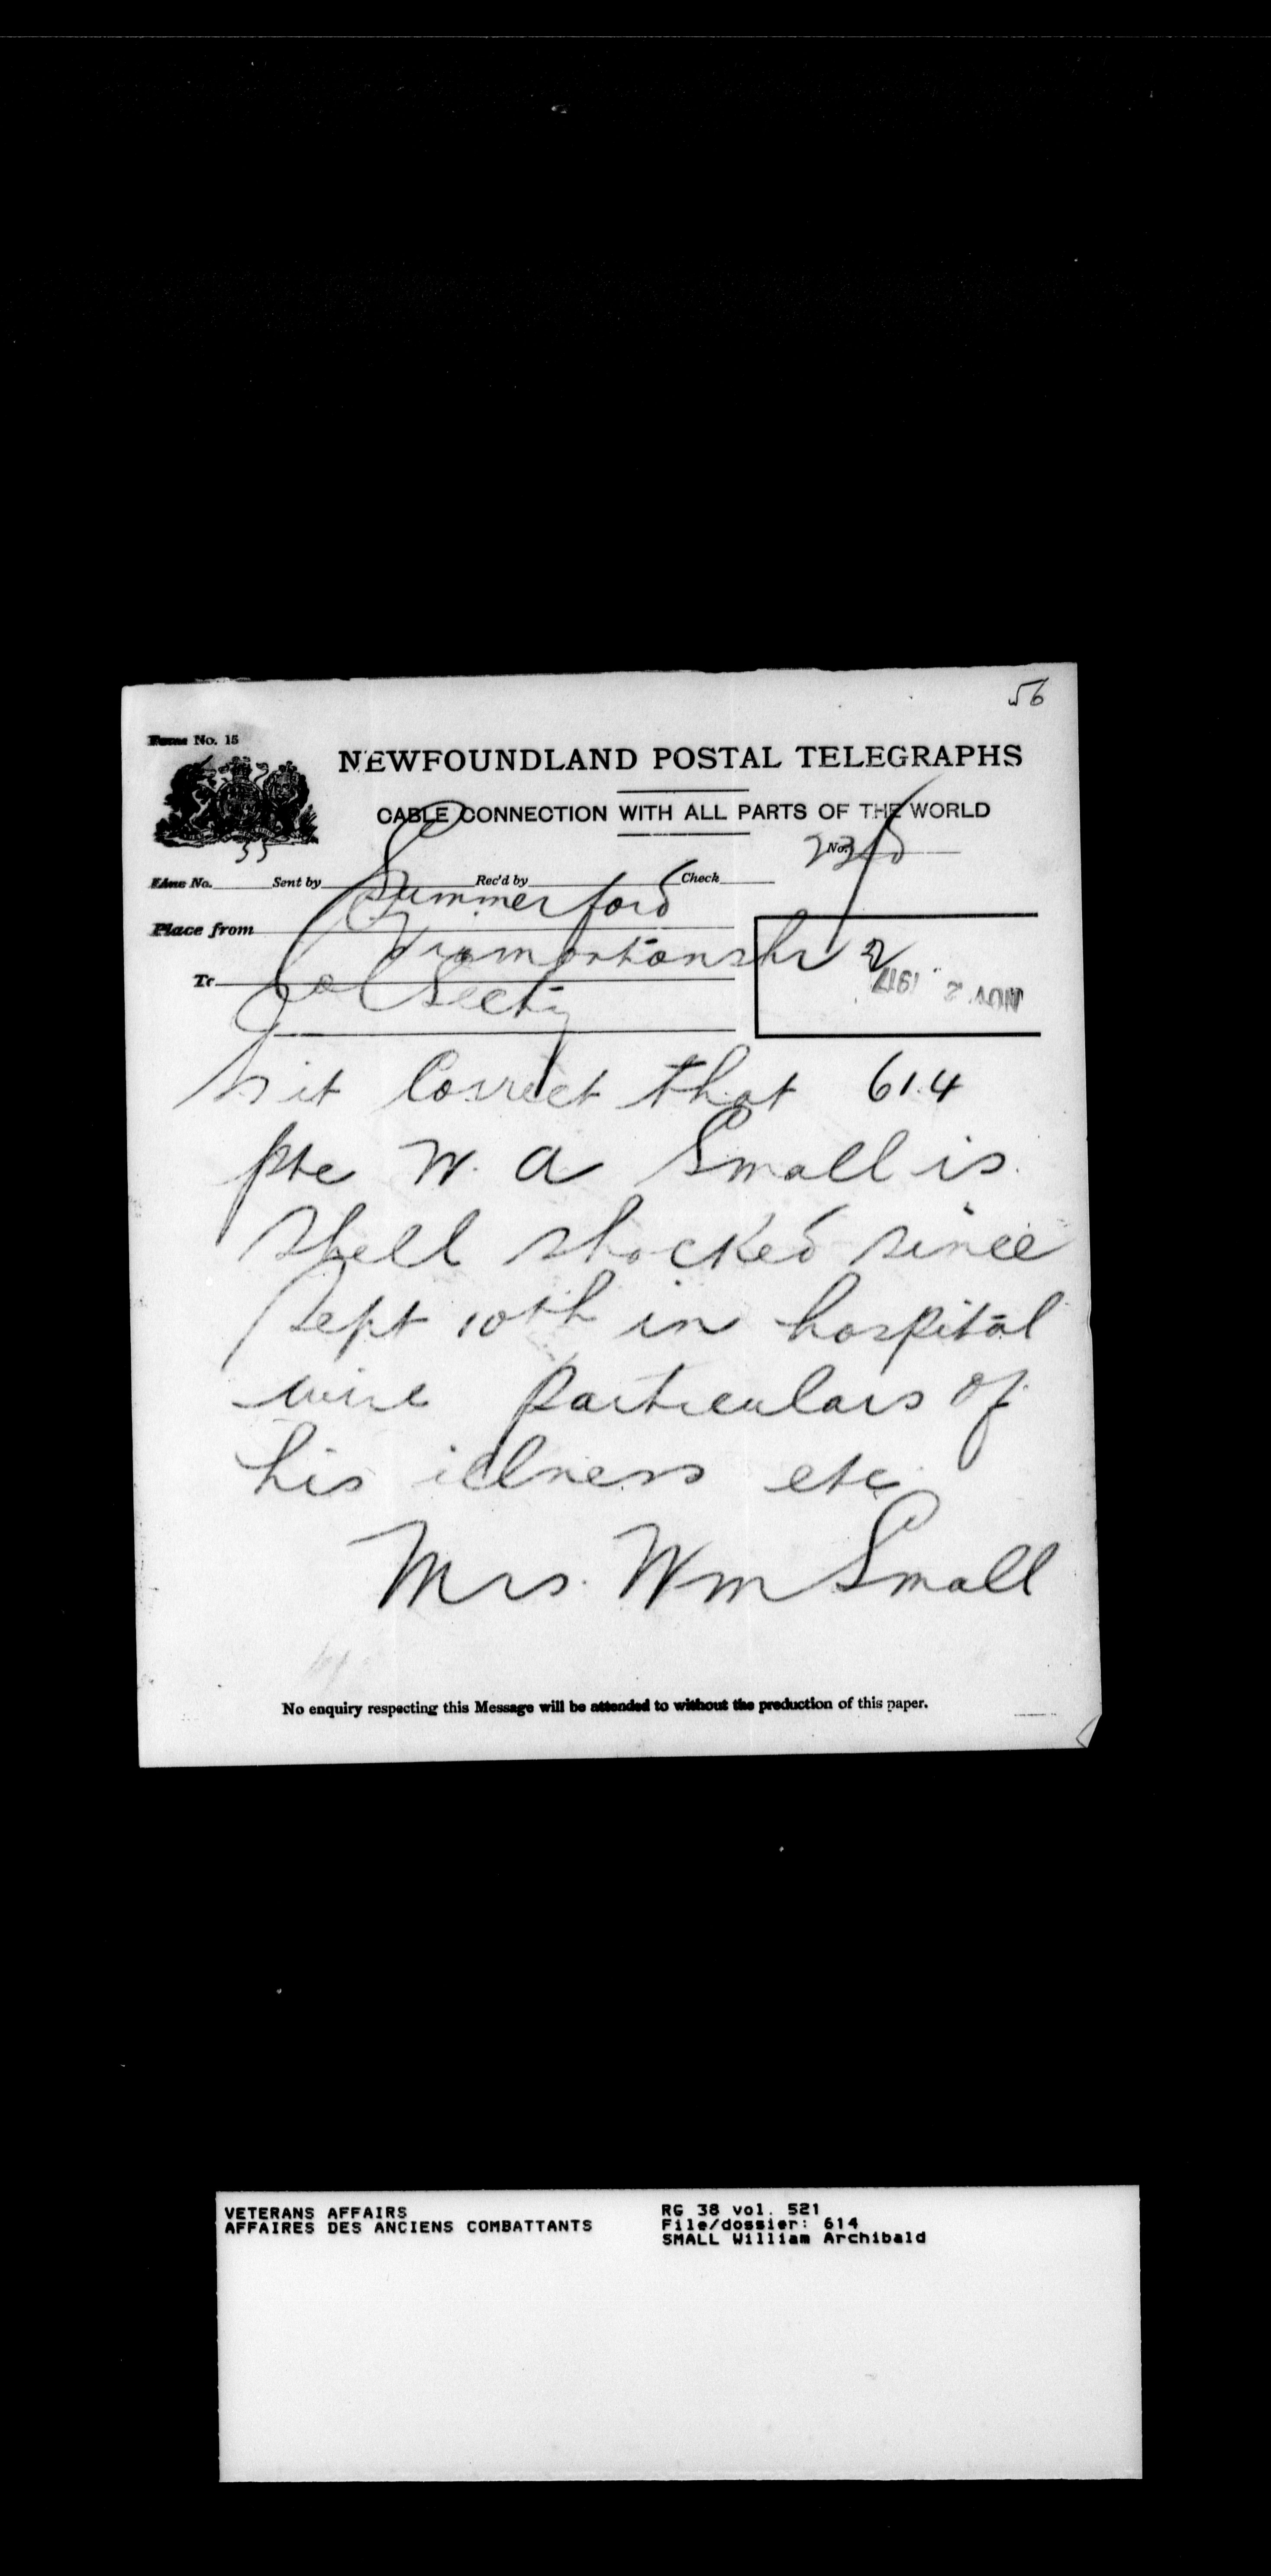 56
Form No. 15
NEWFOUNDLAND POSTAL TELEGRAPHS
CABLE CONNECTION WITH ALL PARTS OF THE WORLD
No.
55
Line No. Sent by Rec'd by Check
Summerford
Place from
2
To Col Secty
NOV 2 1917
Is it Correct that 614
pte W. A Small is
Shell shocked since
Sept 10th in hospital
wire particulars of
his illness etc
Mrs. Wm Small
No enquiry respecting this Message will be attended to without the production of this paper.
VETERANS AFFAIRS RG 38 vol. 521
AFFAIRES DES ANCIENS COMBATTANTS File/dossier: 614
SMALL William Archibald